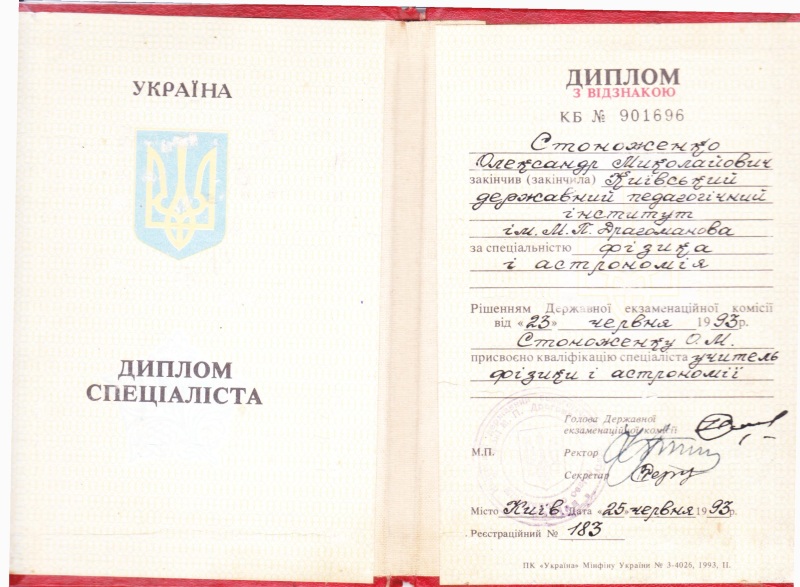 УКРАЇНА
ДИПЛОМ
СПЕЦІАЛІСТА
ДИПЛОМ
З ВІДЗНАКОЮ
КБ № 901696
Стоноженко
Олександр Миколайович
закінчив (закінчила) Київський
державний педагогічний
інститут
ім. М.П. Драгоманова
за спеціальністю фізика
і астрономія
Рішенням Державної екзаменаційної комісії
від «23» червня 1993р.
Стоноженку О.М.
присвоєно кваліфікацію спеціаліста учитель
фізики і астрономії
Голова Державної
екзаменаційної комісії
М.П. Ректор
Секретар
Місто Київ Дата «25» червня 1993р.
Реєстраційний № 183
ПК «Україна» Мінфіну України № 3-4026, 1993, II.